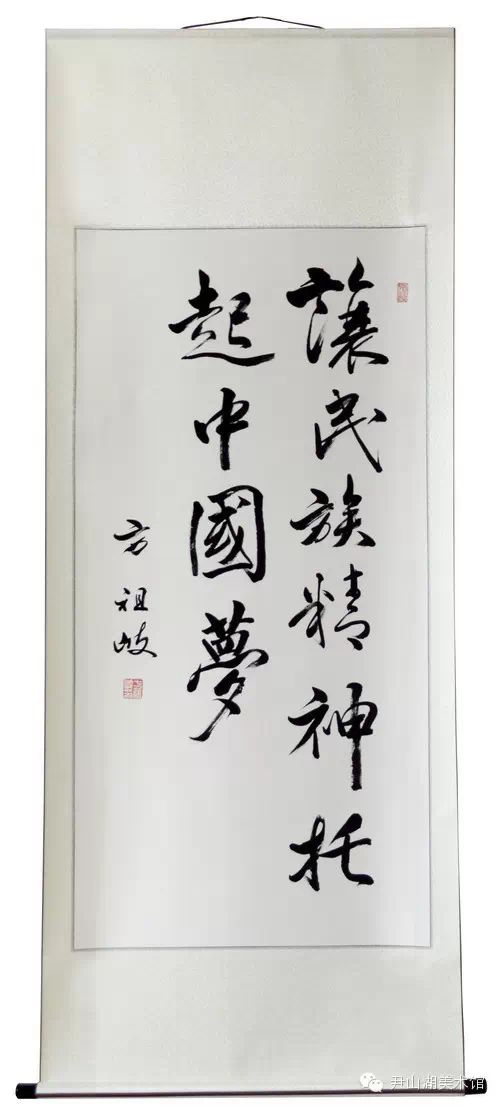 讓民族精神托
起中國夢
方祖岐
尹山湖美术馆